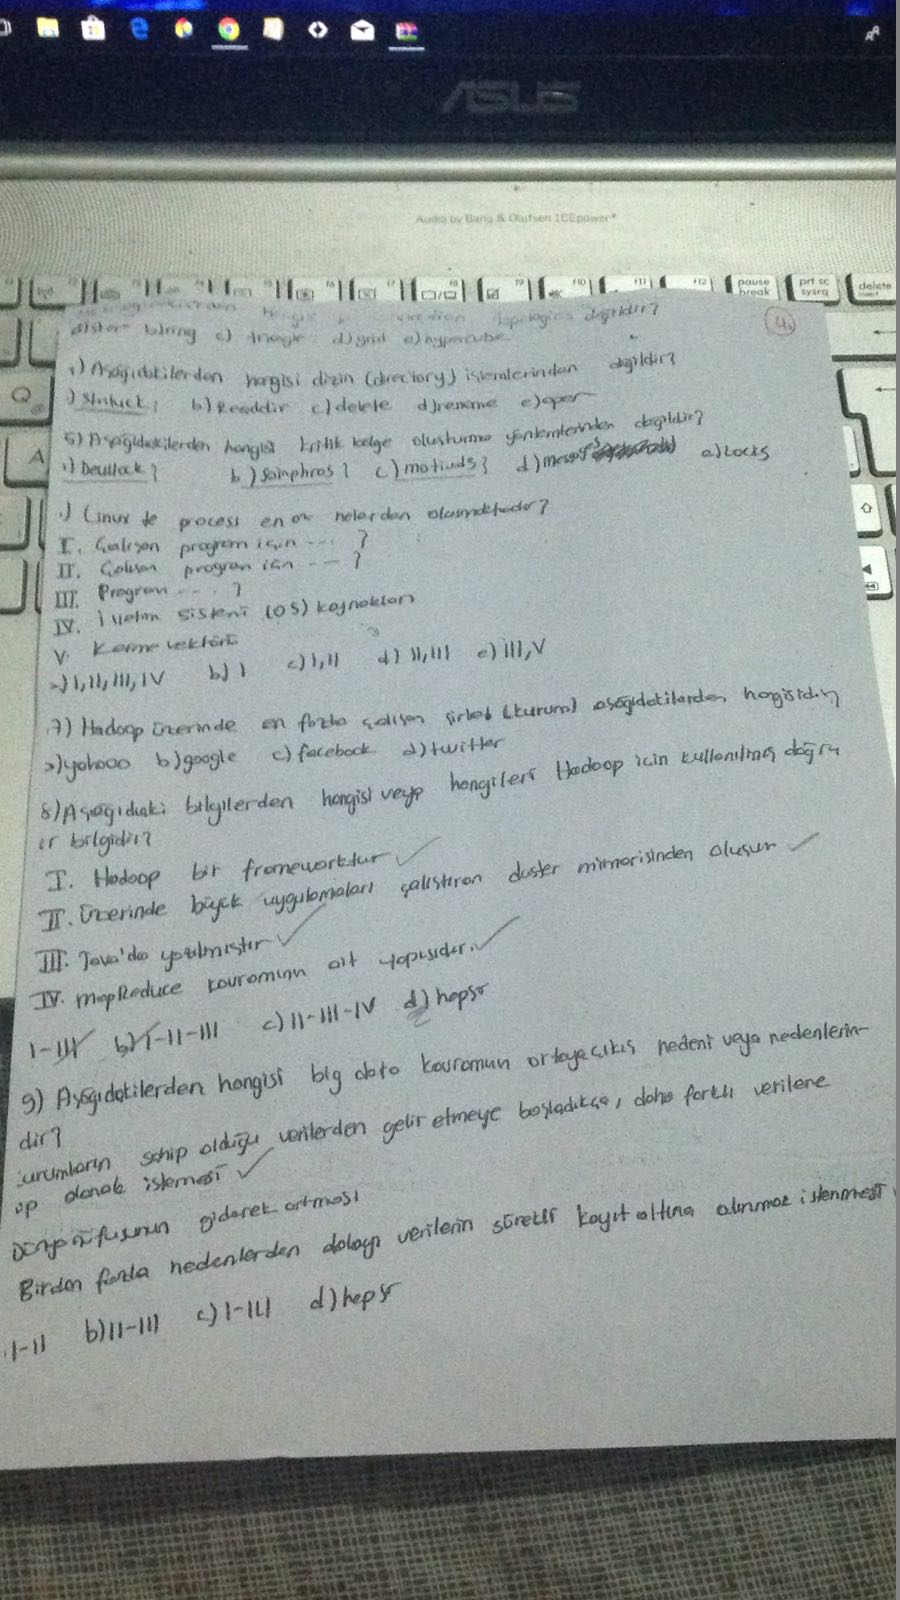 ASUS
Audio by Bang & Olufsen ICEpower®
pause break
prt sc sysrq
delete
Q
A
hangisi connection topologisi değildir?
4.
b)ring c) triangle d)grid e)hypercube
) Aşağıdakilerden hangisi dizin (directory) işlemlerinden değildir?
b) Readdir c)delete d)rename e)open
5) Aşağıdakilerden hangisi kritik bölge oluşturma yöntemlerinden değildir?
) Deadlock? b) ? c) ? d) e)Locks
.) Linux te process en az nelerden oluşmaktadır?
I. Çalışan program için --- ?
II. Çalışan program için --- ?
III. Program --- . ?
IV. İşletim sistemi (OS) kaynakları
V. Kesme vektörü
a) I, II, III, IV b) I c) I, II d) II, III e) III, V
7) Hadoop üzerinde en fazla çalışan şirket (kurum) aşağıdakilerden hangisidir
a)yahoo b)google c) facebook d)twitter
8) Aşağıdaki bilgilerden hangisi veya hangileri Hadoop icin kullanılmış doğru
ir bilgidir?
I. Hadoop bir frameworktur
II. Üzerinde büyük uygulamaları çalıştıran cluster mimarisinden oluşur
III. Java'da yazılmıştır
IV. MapReduce kavramının ait yapısıdır.
I-III b) I-II-III c) II-III-IV d) hepsi
9) Aşağıdakilerden hangisi big data kavramun ortaya çıkış nedeni veya nedenlerin-
dir?
urumların sahip olduğu verilerden gelir etmeye başladıkça, daha farklı verilere
ip olmak istemesi
Dünya nüfusunun giderek artması
Birden fazla nedenlerden dolayı verilerin sürekli kayıt altına alınmak istenmesi
I-II b) II-III c) I-III d) hepsi